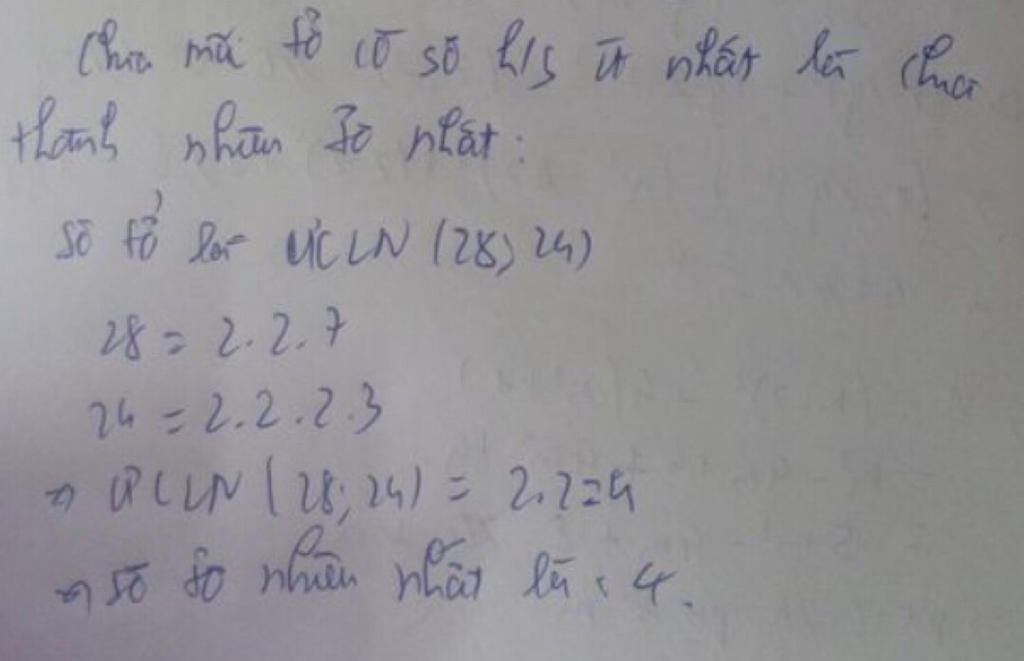 Chia mà tổ có số h/s ít nhất là chia
thành nhiều tổ nhất:
Số tổ là ƯCLN (28; 24)
28 = 2.2.7
24 = 2.2.2.3
=> ƯCLN (28; 24) = 2.2=4
=> số tổ nhiều nhất là : 4.